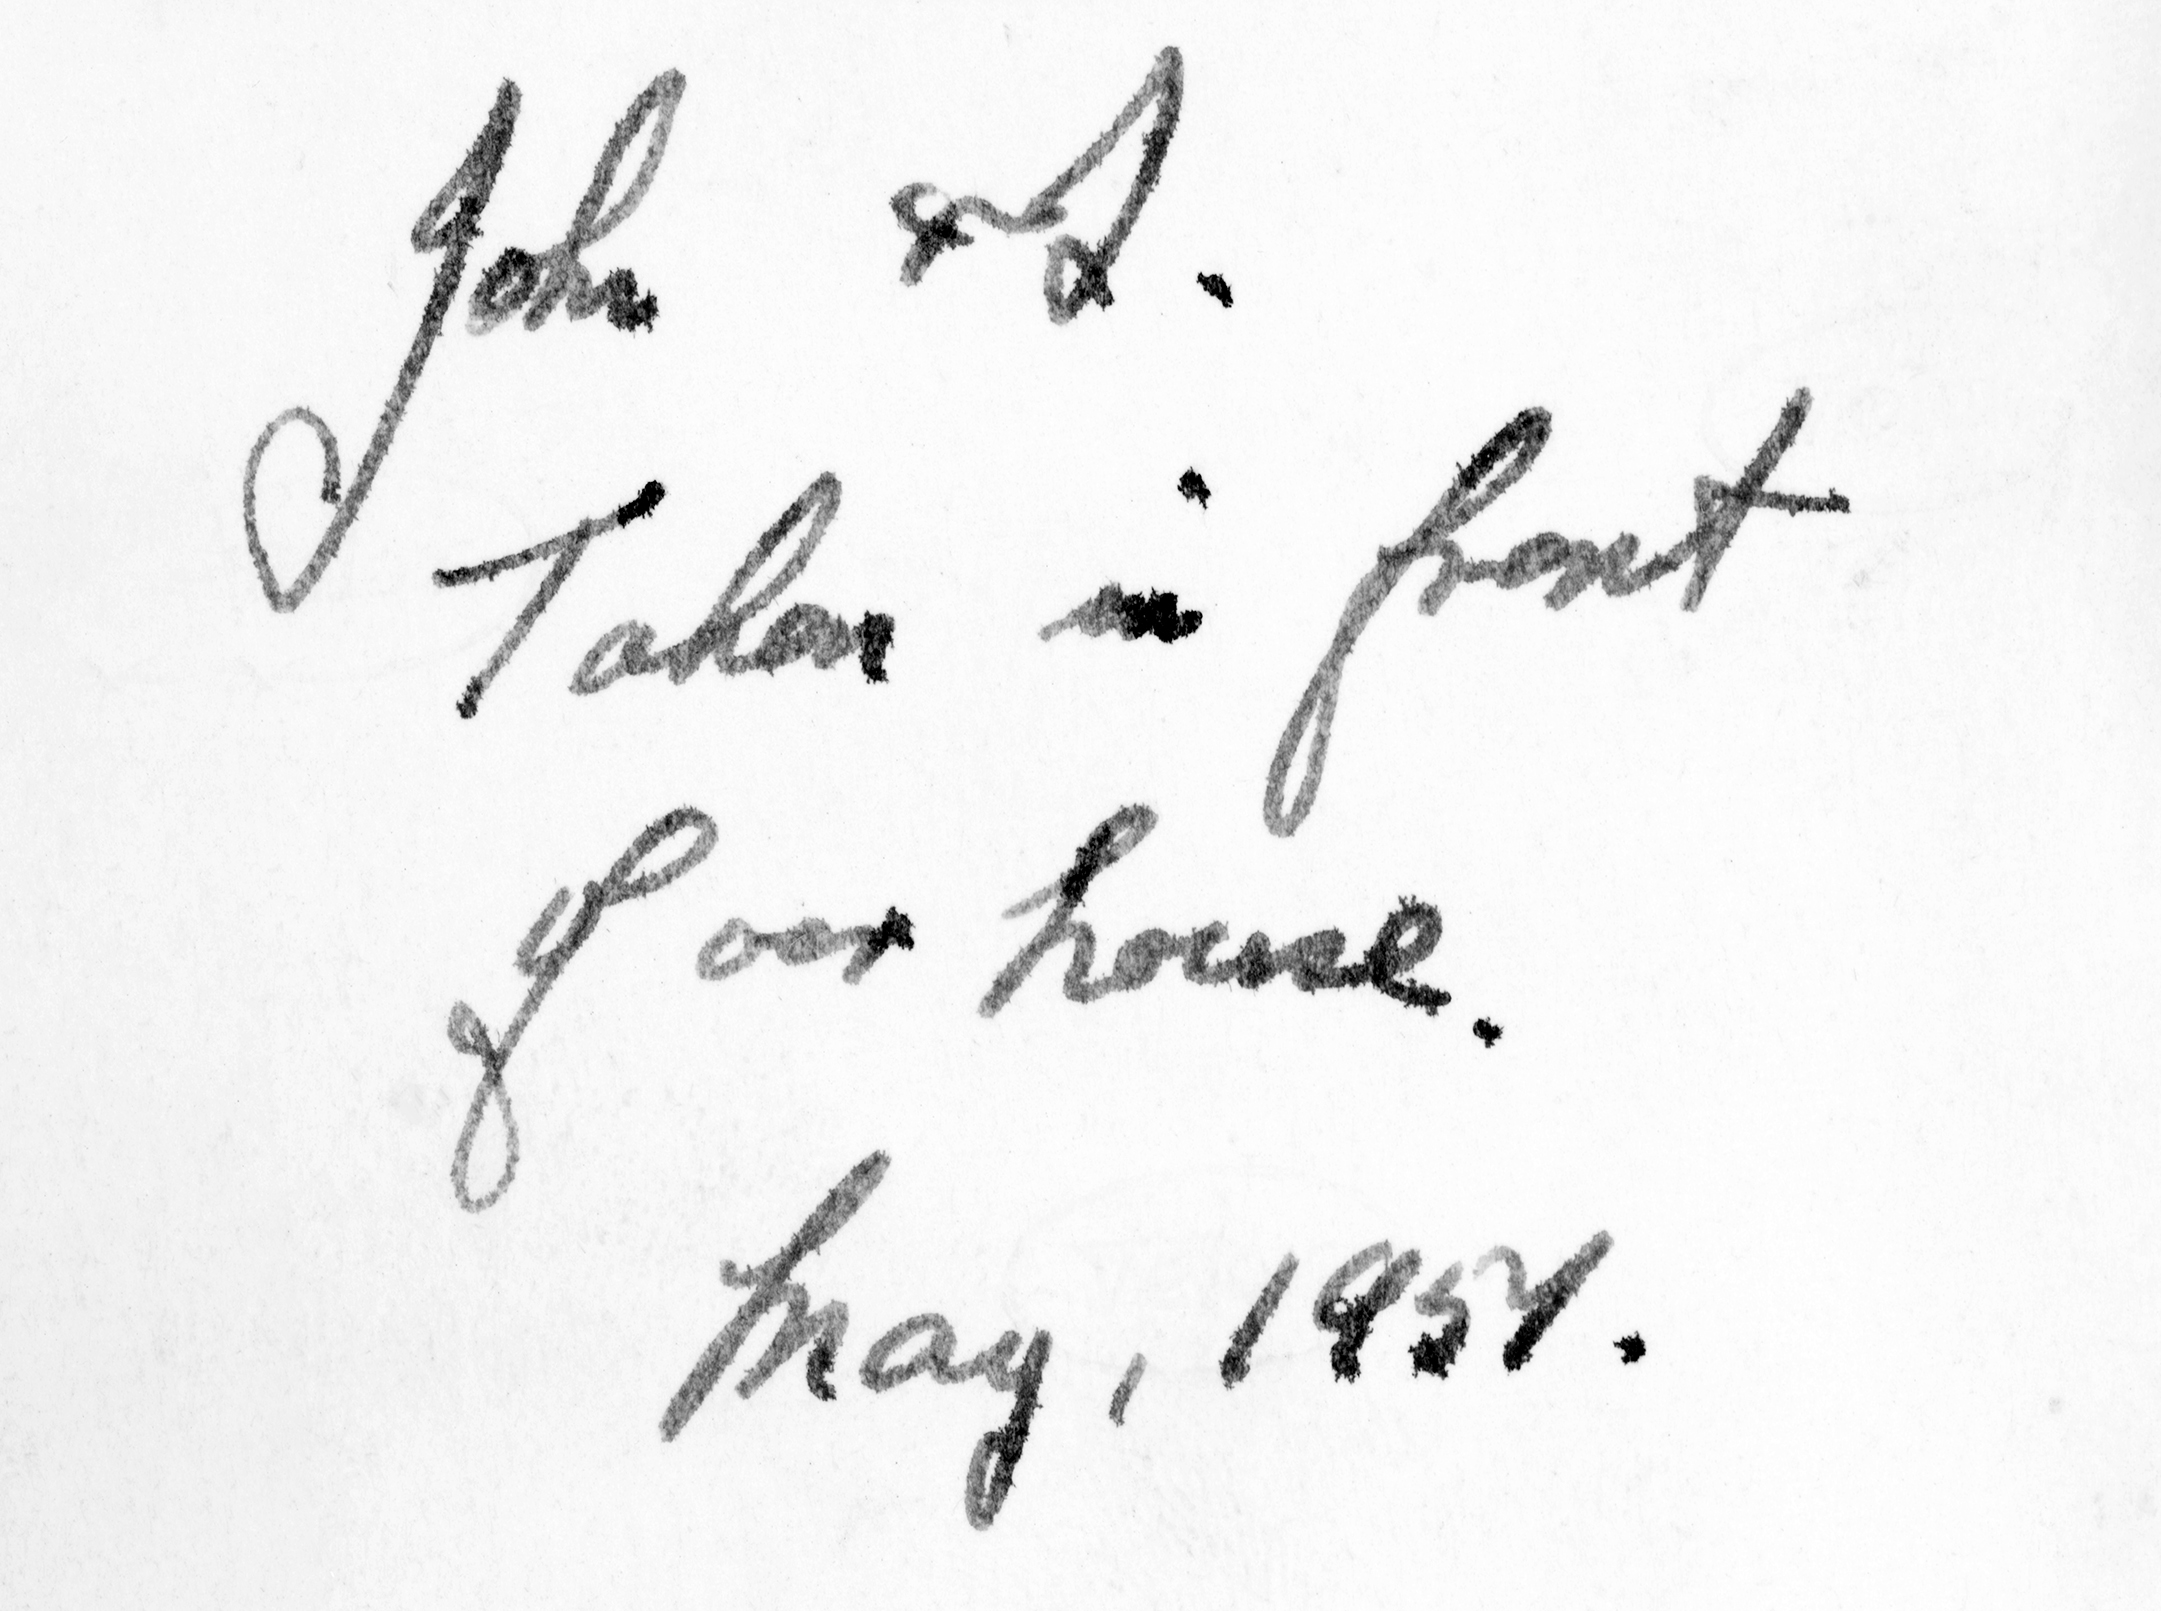 John & I.
Taken in front
of our house.
May, 1954.